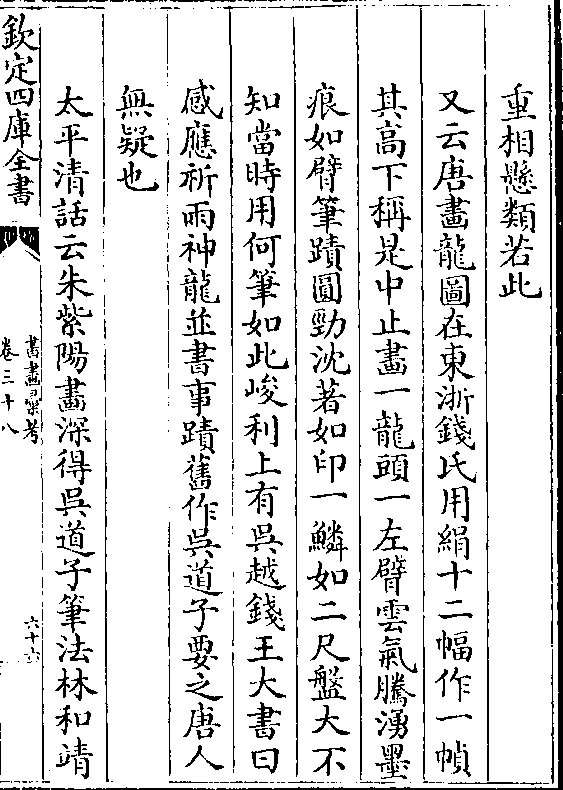 重相懸類若此
又云唐畫龍圖在東浙錢氏用絹十二幅作一幀
其高下稱是中止畫一龍頭一左臂雲氣騰湧墨
痕如臂筆蹟圓勁沈著如印一鱗如二尺盤大不
知當時用何筆如此峻利上有吳越錢王大書曰
感應祈雨神龍並書事蹟舊作吳道子要之唐人
無疑也
太平清話云朱紫陽畫深得吳道子筆法林和靖
欽定四庫全書
書畫彚考
卷三十八
六十六